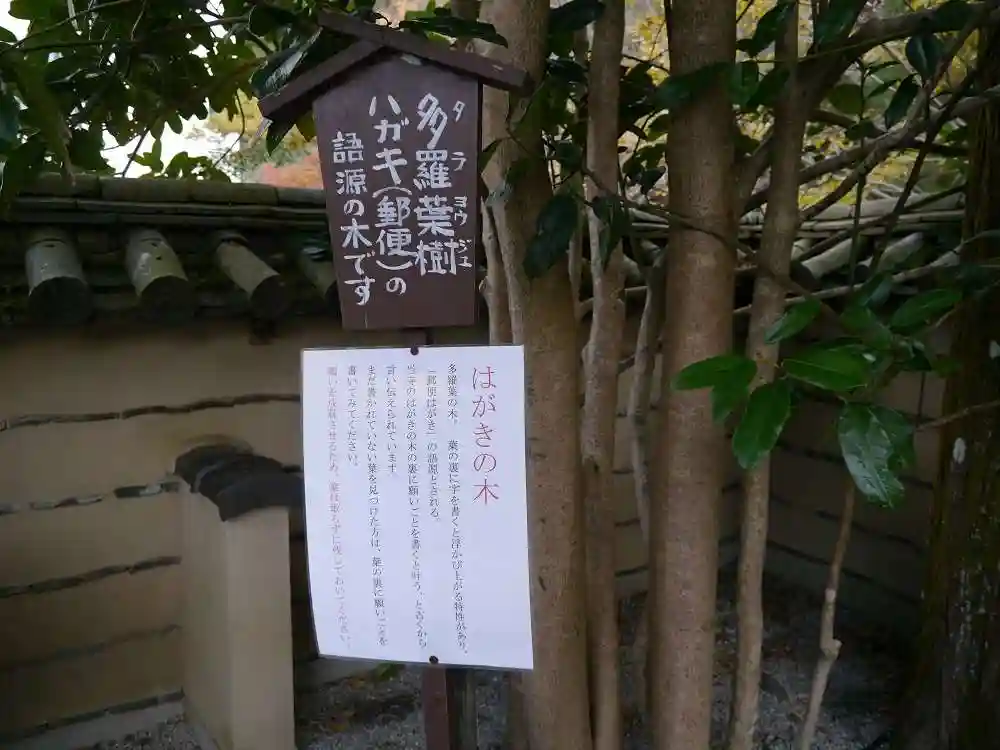 多羅葉樹
タラヨウジュ
ハガキ(郵便)の
語源の木です
はがきの木
多羅葉の木。 葉の裏に字を書くと浮かび上がる特性があり、
「郵便はがき」の語源とされる。
当寺のはがきの木の裏に願いごとを書くと叶う、と古くから
言い伝えられています。
まだ書かれていない葉を見つけた方は、葉の裏に願いごとを
書いてみてください。
願いを成就させるため、葉は取らずに残しておいてください。